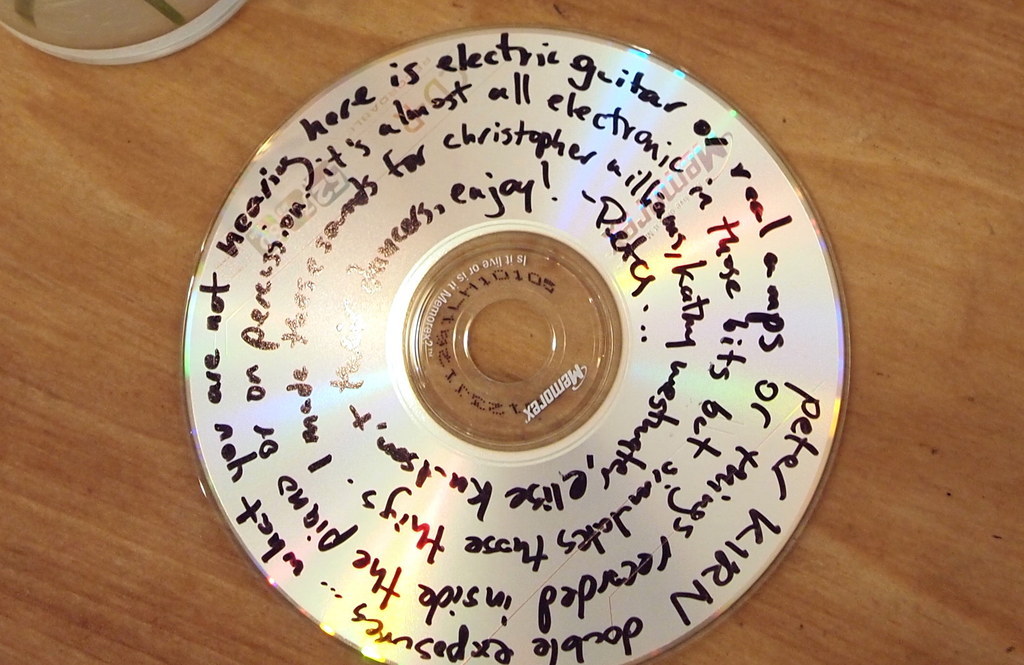 peter KIRN
double exposures...
what you are not hearing here is electric guitar or real amps or things recorded inside the piano or on percussion. it's almost all electronic in those bits but simulates those things. I made these sounds for christopher williams, kathy westwater, elise knudson, + their dancers, enjoy! -Peter...
Memorex
Is it live or is it Memorex?™
Memorex